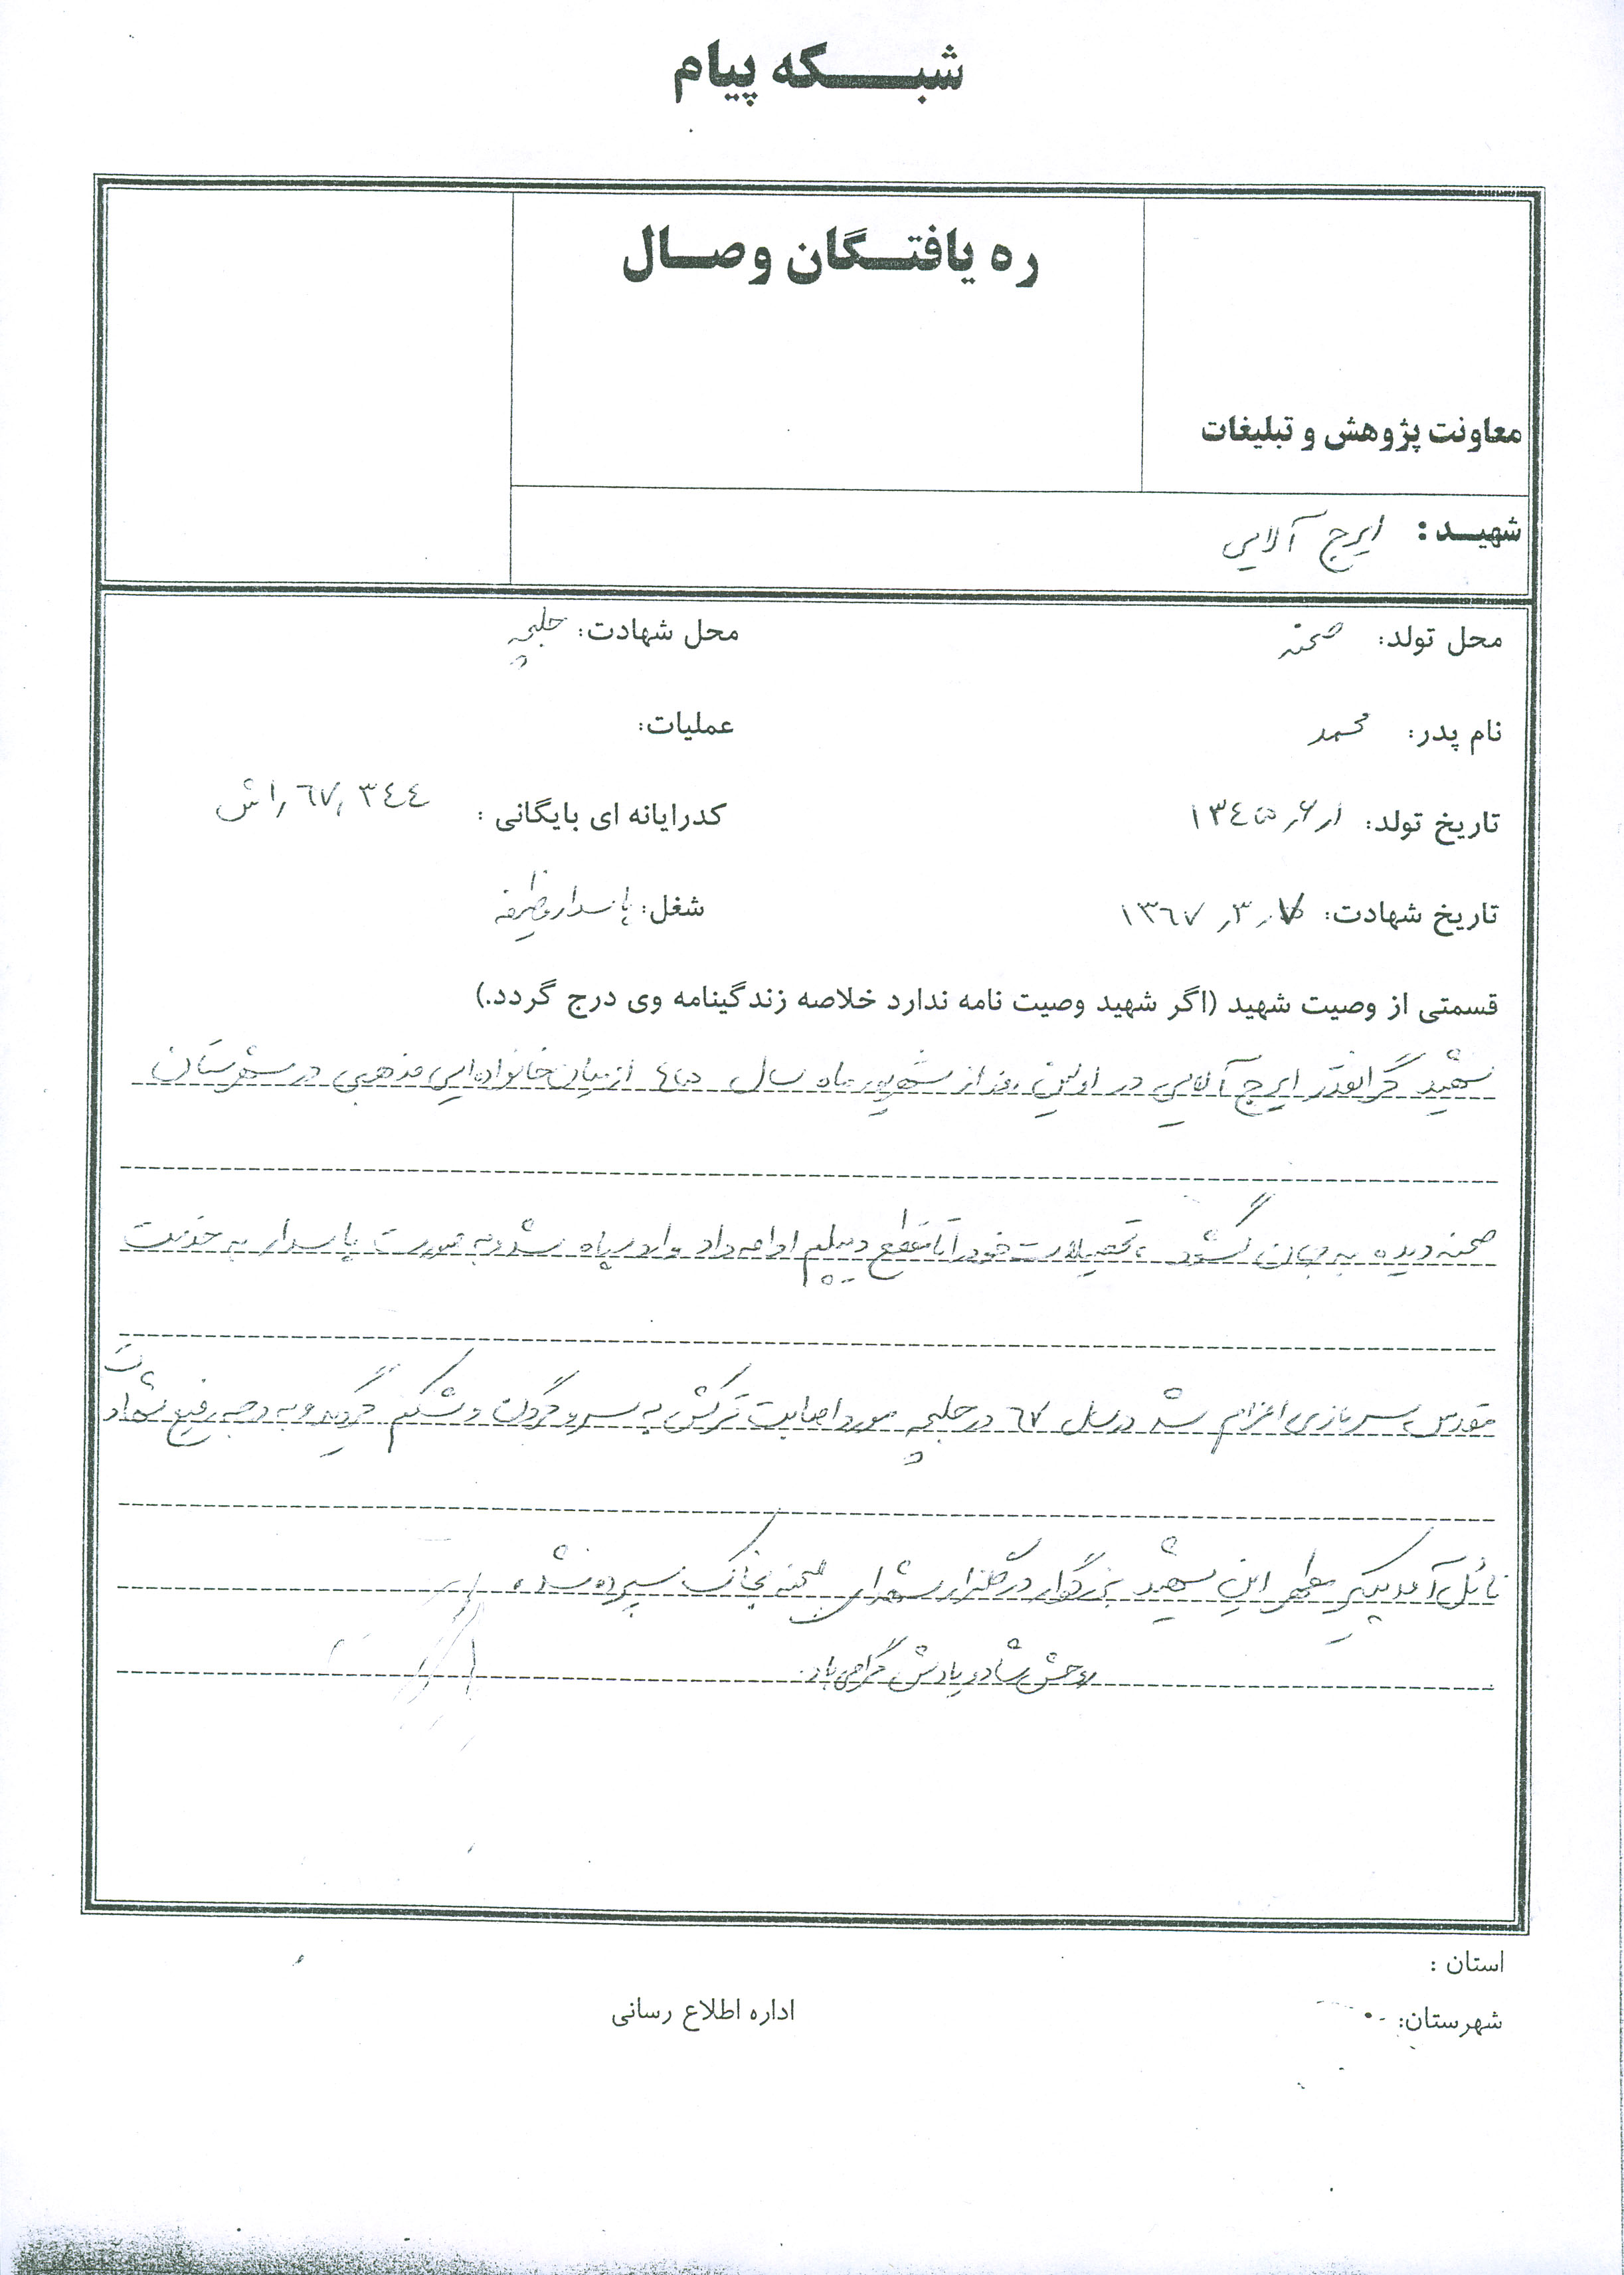 شبکه پیام
ره یافتگان وصال
معاونت پژوهش و تبلیغات
شهید: ایرج آلایی
محل تولد: صحنه
محل شهادت: حلبچه
نام پدر: محمد
عملیات:
تاریخ تولد: ۱۳۴۵٫۶٫۱
کدرایانه ای بایگانی: ۶۷٫۳۴۴٫اش
تاریخ شهادت: ۱۳۶۷٫۳٫
شغل: پاسدار وظیفه
قسمتی از وصیت شهید (اگر شهید وصیت نامه ندارد خلاصه زندگینامه وی درج گردد.)
شهید گرانقدر ایرج آلایی در اولین روز از شهریور ماه سال ۴۵ از میان خانواده ایی مذهبی در شهرستان
صحنه دیده به جهان گشود، تحصیلات خود را تا مقطع دیپلم ادامه داد وارد سپاه شد و به صورت پاسدار به خدمت
مقدس سربازی اعزام شد در سال ۶۷ در حلبچه مورد اصابت ترکش به سر و گردن و شکم گردید و به درجه رفیع شهادت
نائل آمد پیکر مطهر این شهید بزرگوار در گلزار شهدای صحنه بخاک سپرده شد.
روحش شاد و یادش گرامی باد.
استان:
شهرستان:
اداره اطلاع رسانی